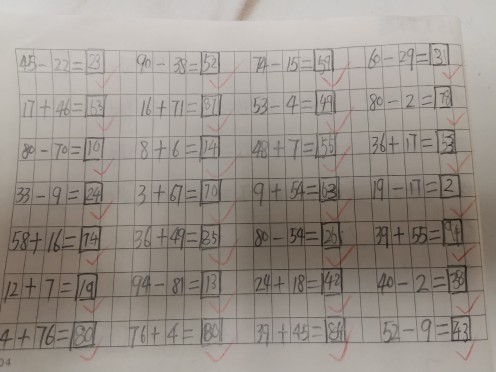 45-22=23 90-38=52 74-15=59 60-29=31
17+46=63 16+71=87 53-4=49 80-2=78
80-70=10 8+6=14 48+7=55 36+17=53
33-9=24 3+67=70 9+54=63 19-17=2
58+16=74 36+49=85 80-54=26 39+55=94
12+7=19 94-81=13 24+18=42 40-2=38
4+76=80 76+4=80 39+45=84 52-9=43